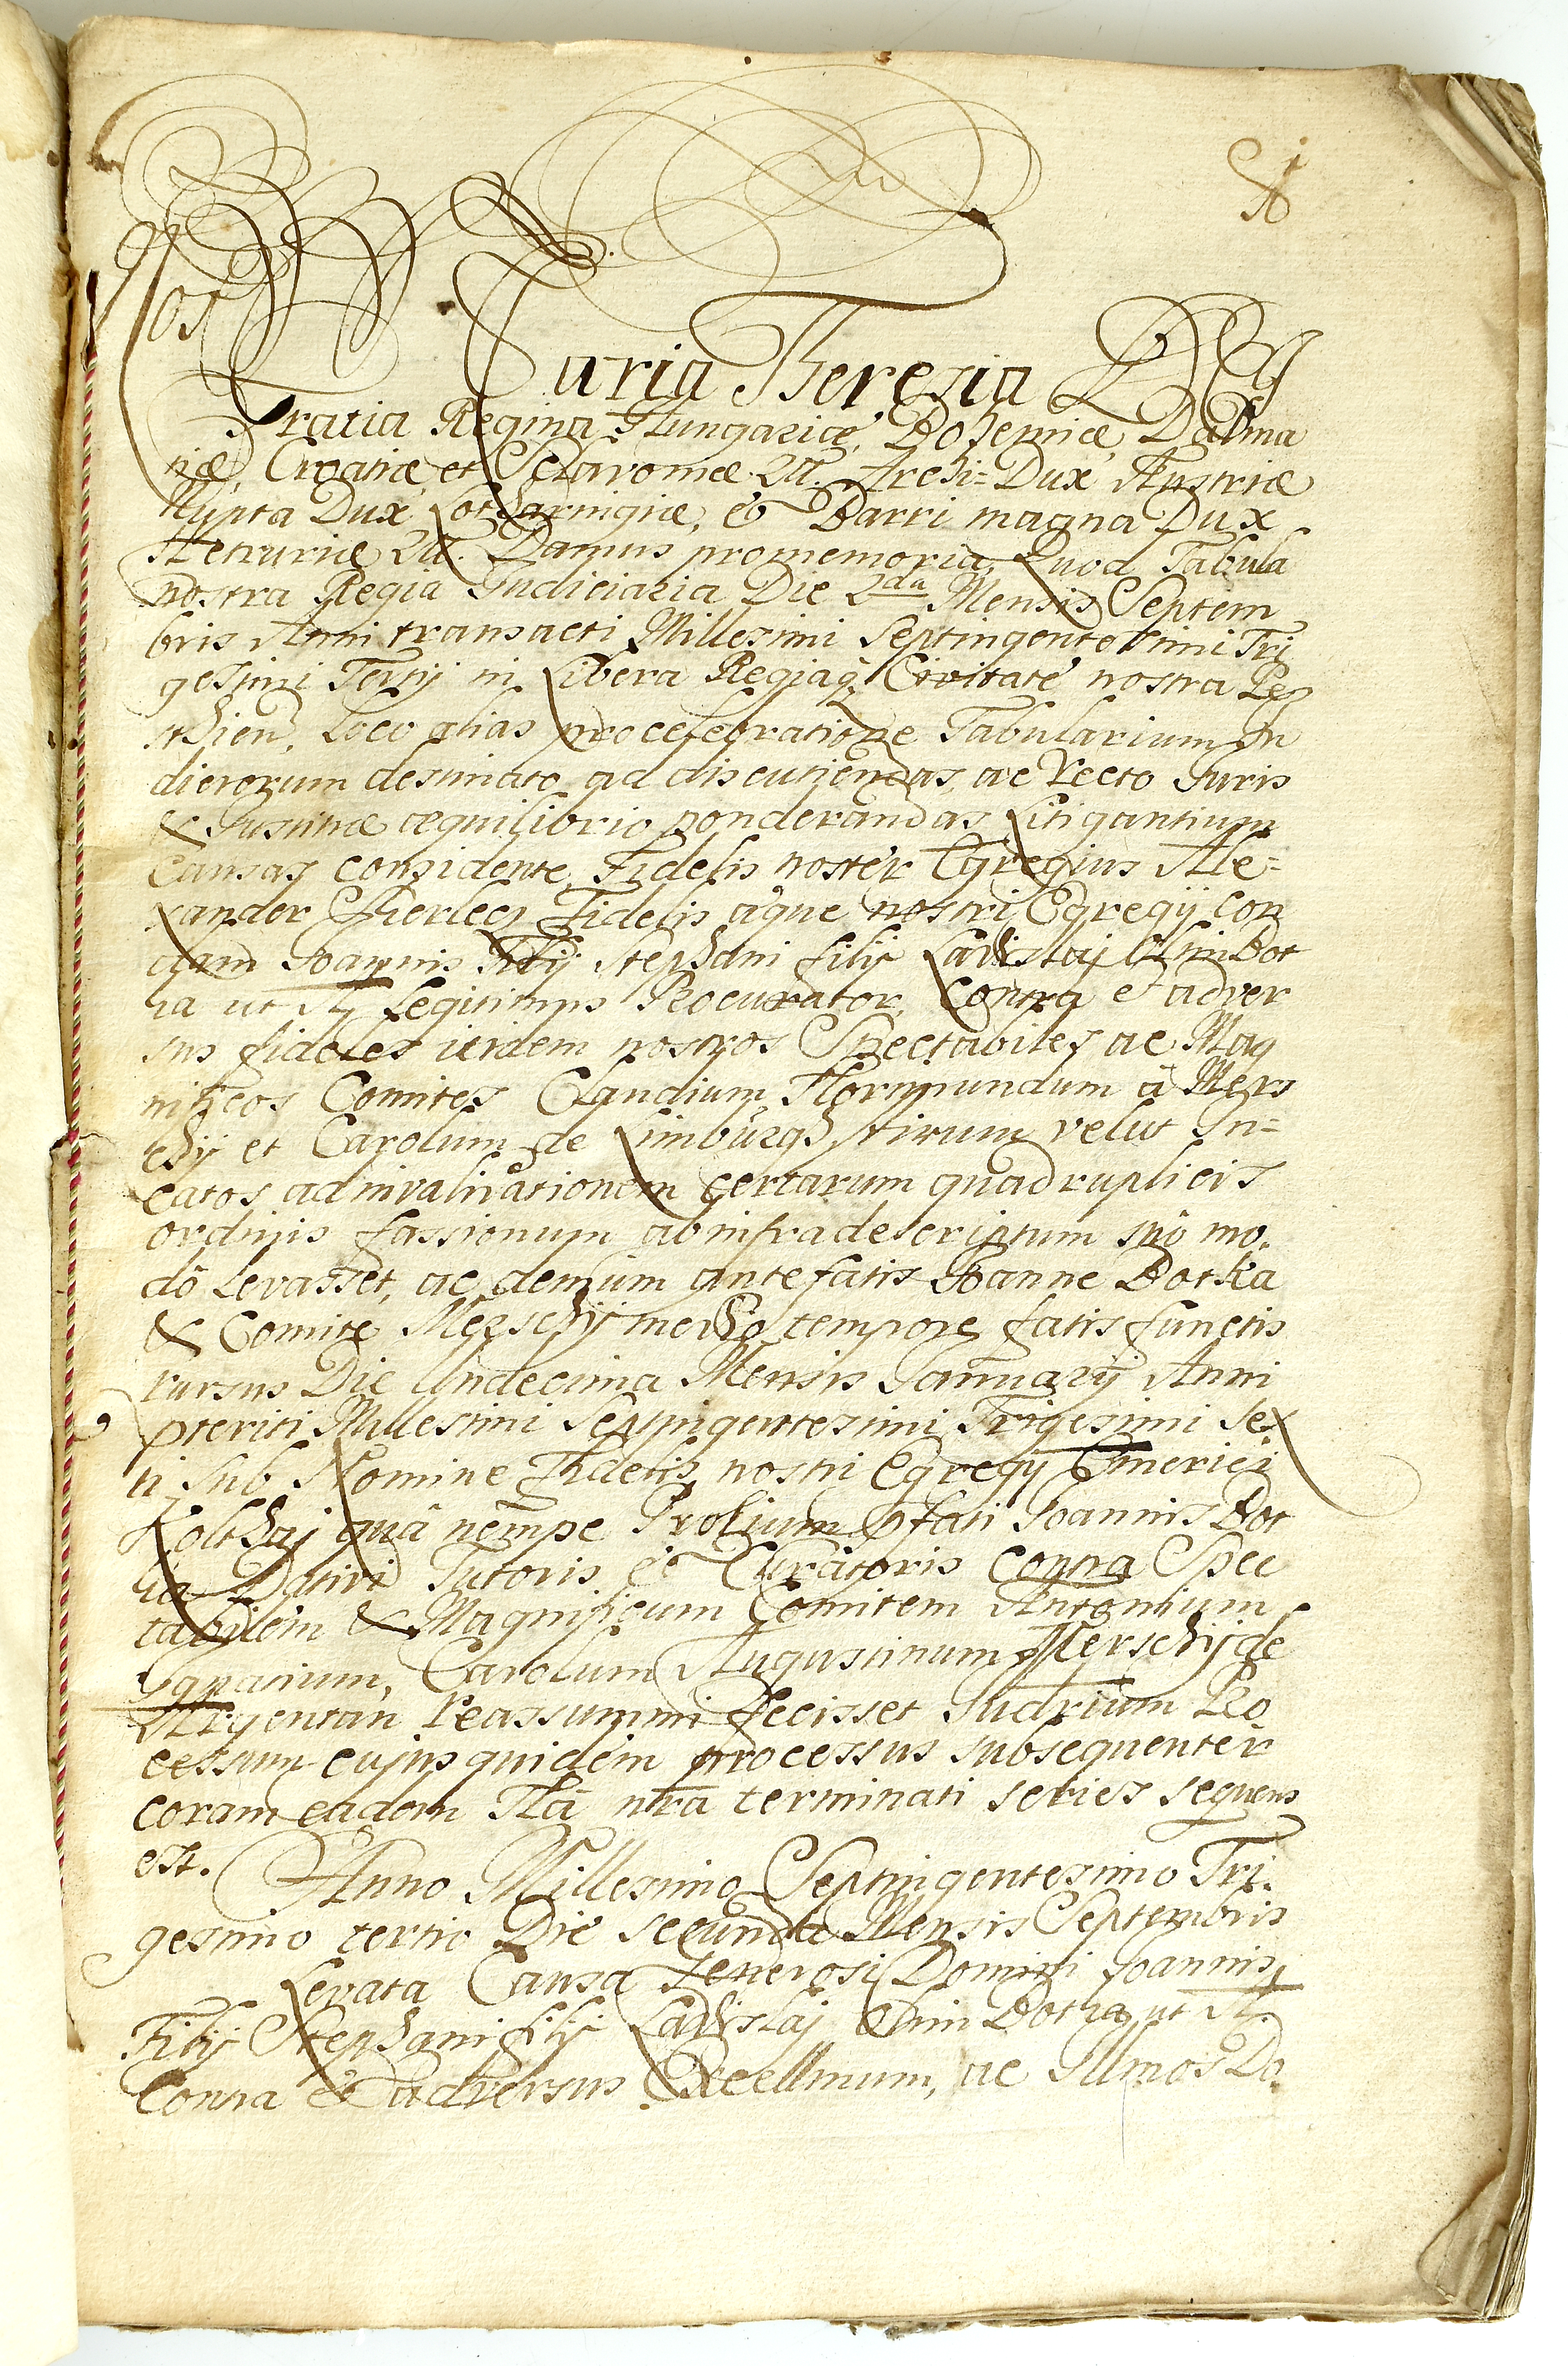 Nos
Maria Theresia Dei
Gratia Regina Hungariæ, Bohemiæ, Dalma
tiæ, Croatiæ, et Sclavoniæ &c. Archi-Dux Austriæ
Nupta Dux Lotharingiæ, & Barri magna Dux
Hetruriæ &c. Damus pro memoria, Quod Tabula
nostra Regia Iudiciaria Die 2da Mensis Septem
bris Anni transacti Millesimi Septingentesimi Tri
gesimi Tertij in Libera Regiaq Civitate nostra Pe
sthien, Loco alias pro celebratione Tabularium Iu
diciorum destinato ad discutiendas, ac recto Iuris
& Iustitiæ æquilibrio ponderandas Litigantium
Causas considente, Fidelis noster Egregius Ale=
xander Fidelis æque nostri Egregij con
dam Ioannis Filij Stephani filij Ladislaj olim Bot
ka ut A Legitimus Procurator, Contra & adver
sus fideles itidem nostros Spectabiles ac Mag
nificos Comites Claudium Florimundum à Mers
chij et Carolum de Limburgh Stirum velut In=
catos ad invalidationem certarum quadruplicis
ordinis fassionum ab infradescriptum suô mo,
dô levasset, ac demum antefatis Ioanne Botka
& Comite Merschij medio tempore fatis functis
rursus Die Undecima Mensis Ianuarij Anni
pteriti Millesimi Septingentesimi Trigesimi Sex
ti sub Nomine Fidelis nostri Egregij Emerici
Kolthaj quâ nempe Prolium pfati Ioannis Bot
ka Dativi Tutoris & Curatoris Contra Spec
tabilem & Magnificum Comitem Antonium
Ignatium, Carolum Augustinum Merschij de
Argentan reassummi fecisset Iudrium Pro
cessum cujus quidem processus subsequenter
coram eadem Tla nra terminati series sequens
est. Anno Millesimo Septingentesimo Tri,
gesimo tertio Die secunda Mensis Septembris
Levata Causa Generosi Domini Ioannis,
Filij Stephani filij Ladislaj olim Botka ut A
Contra & adversus Excellmum, ac Illmos Do,